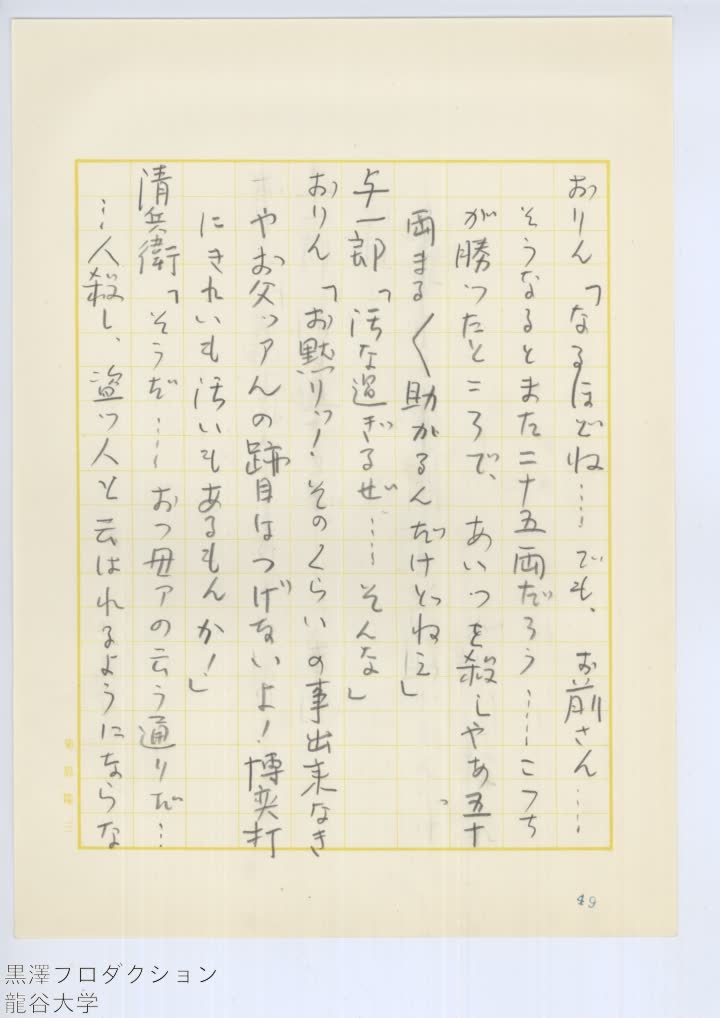 おりん「なるほどね……でも、お前さん……
そうなるとまた二十五両だろう……こつち
が勝つたところで、あいつを殺しやあ五十
両まる〱助かるんだけどねえ」
与一郎「汚な過ぎるぜ……そんな」
おりん「お黙りッ！そのくらいの事出来なき
やお父ッアんの跡目はつげないよ！博奕打
にきれいも汚いもあるもんか！」
清兵衛「そうだ……おつ母アの云う通りだ…
…人殺し、盗ッ人と云はれるようにならな
49
黒澤プロダクション
龍谷大学